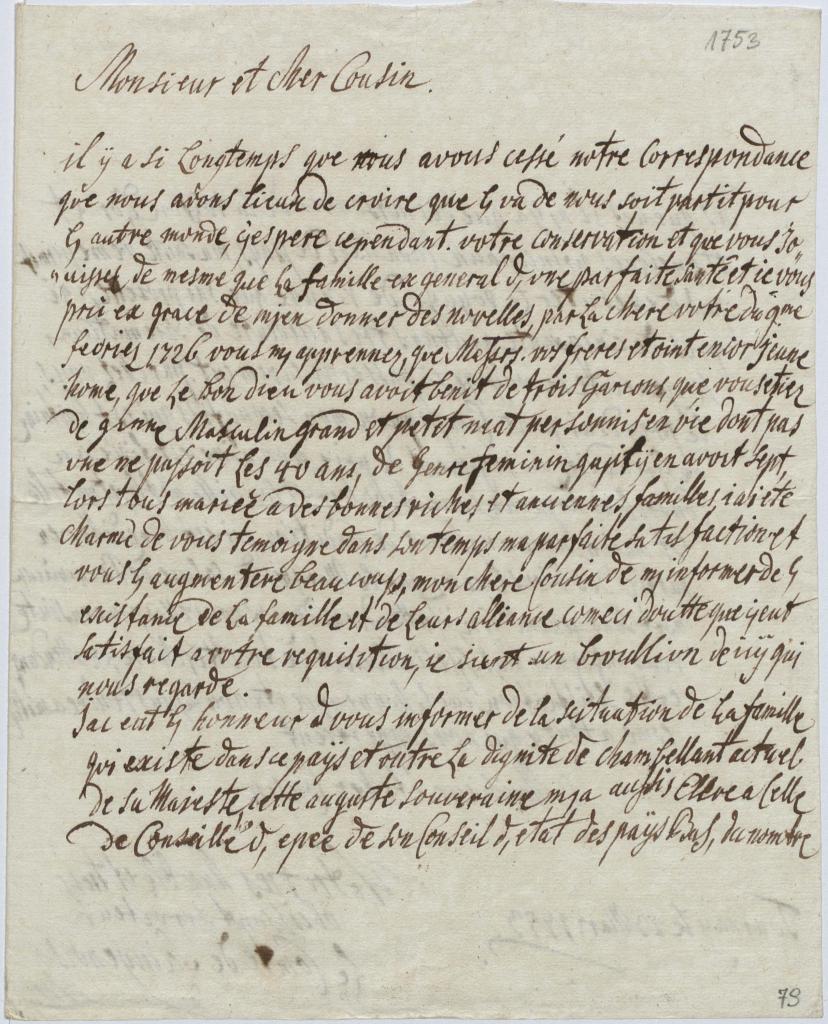 1753
Monsieur et cher Cousin.
il y a si Longtemps que nous avous cessé notre Correspondance
que nous avons lieux de croire que L, un de nous soit partit pour
L, autre monde, j'espere cependant. votre conservation et que vous Jo"
"uisses de mesme que La famille en general d, une parfaite santé et ie vous
prie en grace de m'en donner des novelles, par La chere votre du
fevrier 1726 vous m, apprennez, que Messrs. vos freres etoint encor jeune
home, que Le bon dieu vous avoit benit de trois Garcons, que vous etiez
de genre Masculin grand et petit personnis en vie dont pas
une ne passoit Les 40 ans, de Genre feminin qu'il y en avoit sept,
Lors tous mariez a des bonnes riches et anciennes familles, i'ai eté
charmé de vous temoigne dans son temps ma parfaite satisfaction et
vous L, augmentere beaucoups, mon chere Cousin de m, informer de L,
existance de La famille et de Leurs alliance come ie doutte que j'eut
satisfait a votre requisition, ie un broullion de qui
nous regarde.
J'ac eut L, honneur d vous informer de la scituation de La famille
qui existe dans ce païs et outre La dignite de chambellant actuel
de Sa Majeste, cette auguste souveraine m, a aussis Elleve a Celle
de Conseille d, epée de son Conseil d, etat des païs Bas, du nombre
79